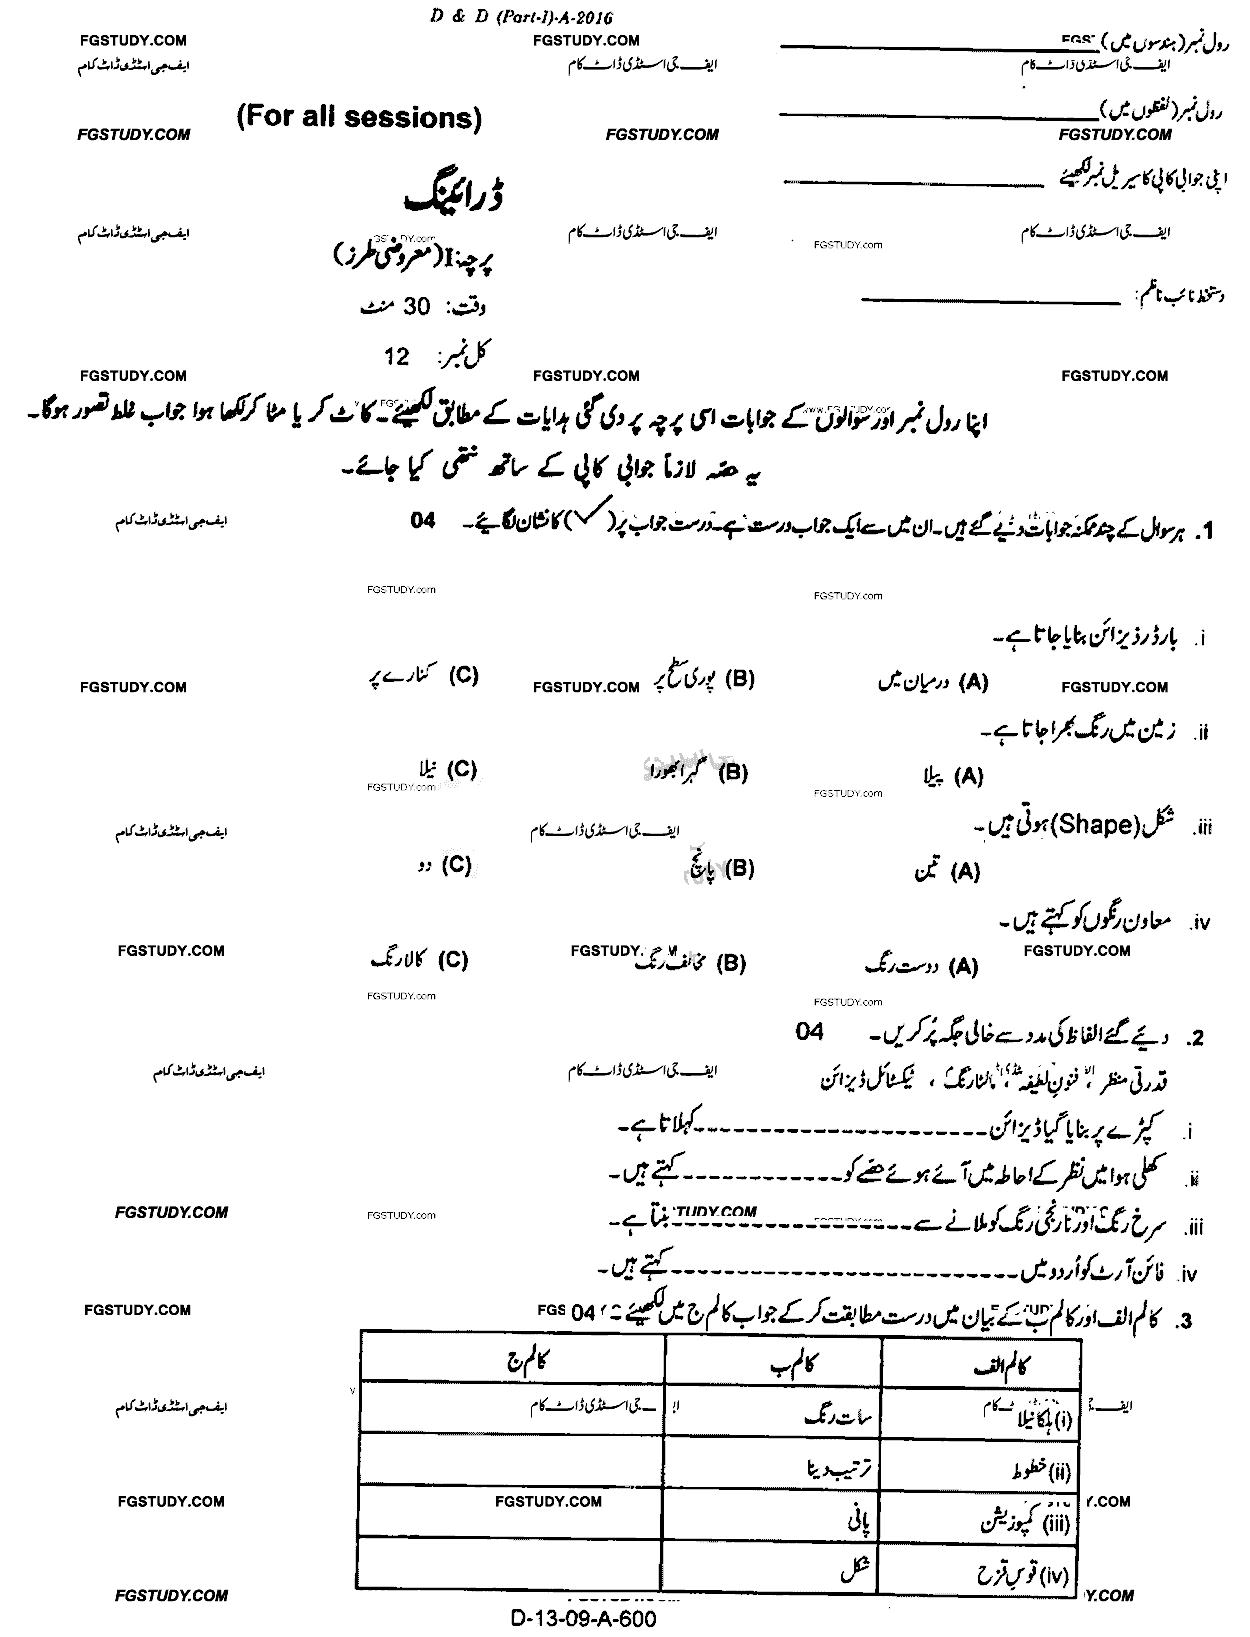 D & D (Part-I)-A-2016
FGSTUDY.COM FGSTUDY.COM رول نمبر (ہندسوں میں)
ایف جی اسٹڈی ڈاٹ کام ایف جی اسٹڈی ڈاٹ کام ایف جی اسٹڈی ڈاٹ کام
(For all sessions) رول نمبر (لفظوں میں)
FGSTUDY.COM FGSTUDY.COM FGSTUDY.COM
ڈرائینگ اپنی جوابی کاپی کا سیریل نمبر لکھیئے
ایف جی اسٹڈی ڈاٹ کام ایف جی اسٹڈی ڈاٹ کام ایف جی اسٹڈی ڈاٹ کام
پرچہ: I (معروضی طرز) FGSTUDY.com
وقت: 30 منٹ دستخط نائب ناظم:
کل نمبر: 12
FGSTUDY.COM FGSTUDY.COM FGSTUDY.COM
اپنا رول نمبر اور سوالوں کے جوابات اسی پرچہ پر دی گئی ہدایات کے مطابق لکھیئے۔ کاٹ کر یا مٹا کر لکھا ہوا جواب غلط تصور ہوگا۔
یہ حصّہ لازماً جوابی کاپی کے ساتھ نتھی کیا جائے۔
1. ہر سوال کے چند ممکنہ جوابات دیئے گئے ہیں۔ ان میں سے ایک جواب درست ہے۔ درست جواب پر (✓) کا نشان لگائیے۔ 04
ایف جی اسٹڈی ڈاٹ کام
FGSTUDY.com FGSTUDY.com
i. بارڈر ڈیزائن بنایا جاتا ہے۔
(A) درمیان میں (B) پوری سطح پر (C) کنارے پر
FGSTUDY.COM FGSTUDY.COM FGSTUDY.COM
ii. زمین میں رنگ بھرا جاتا ہے۔
(A) پیلا (B) گہرا بھورا (C) نیلا
FGSTUDY.com FGSTUDY.com
iii. شکل (Shape) ہوتی ہیں۔
ایف جی اسٹڈی ڈاٹ کام ایف جی اسٹڈی ڈاٹ کام
(A) تین (B) پانچ (C) دو
iv. معاون رنگوں کو کہتے ہیں۔
FGSTUDY.COM FGSTUDY. FGSTUDY.COM
(A) دوست رنگ (B) مخالف رنگ (C) کالا رنگ
FGSTUDY.com FGSTUDY.com
2. دیئے گئے الفاظ کی مدد سے خالی جگہ پُر کریں۔ 04
ایف جی اسٹڈی ڈاٹ کام ایف جی اسٹڈی ڈاٹ کام
قدرتی منظر ، فنون لطیفہ ، مالٹا رنگ ، ٹیکسٹائل ڈیزائن
i. کپڑے پر بنایا گیا ڈیزائن ------------------------ کہلاتا ہے۔
ii. کھلی ہوا میں نظر کے احاطہ میں آئے ہوئے حصے کو ------------ کہتے ہیں۔
FGSTUDY.COM FGSTUDY.com TUDY.COM
iii. سرخ رنگ اور نارنجی رنگ کو ملانے سے ------------------ بنتا ہے۔
iv. فائن آرٹ کو اُردو میں ---------------------------- کہتے ہیں۔
3. کالم الف اور کالم ب کے بیان میں درست مطابقت کر کے جواب کالم ج میں لکھیئے۔ 04
FGSTUDY.COM FGS
کالم الف کالم ب کالم ج
(i) ہلکا نیلا سات رنگ
ایف جی اسٹڈی ڈاٹ کام جی اسٹڈی ڈاٹ کام
(ii) خطوط ترتیب دینا
FGSTUDY.COM FGSTUDY.COM Y.COM
(iii) کمپوزیشن پانی
(iv) قوس قزح شکل
FGSTUDY.COM Y.COM
D-13-09-A-600